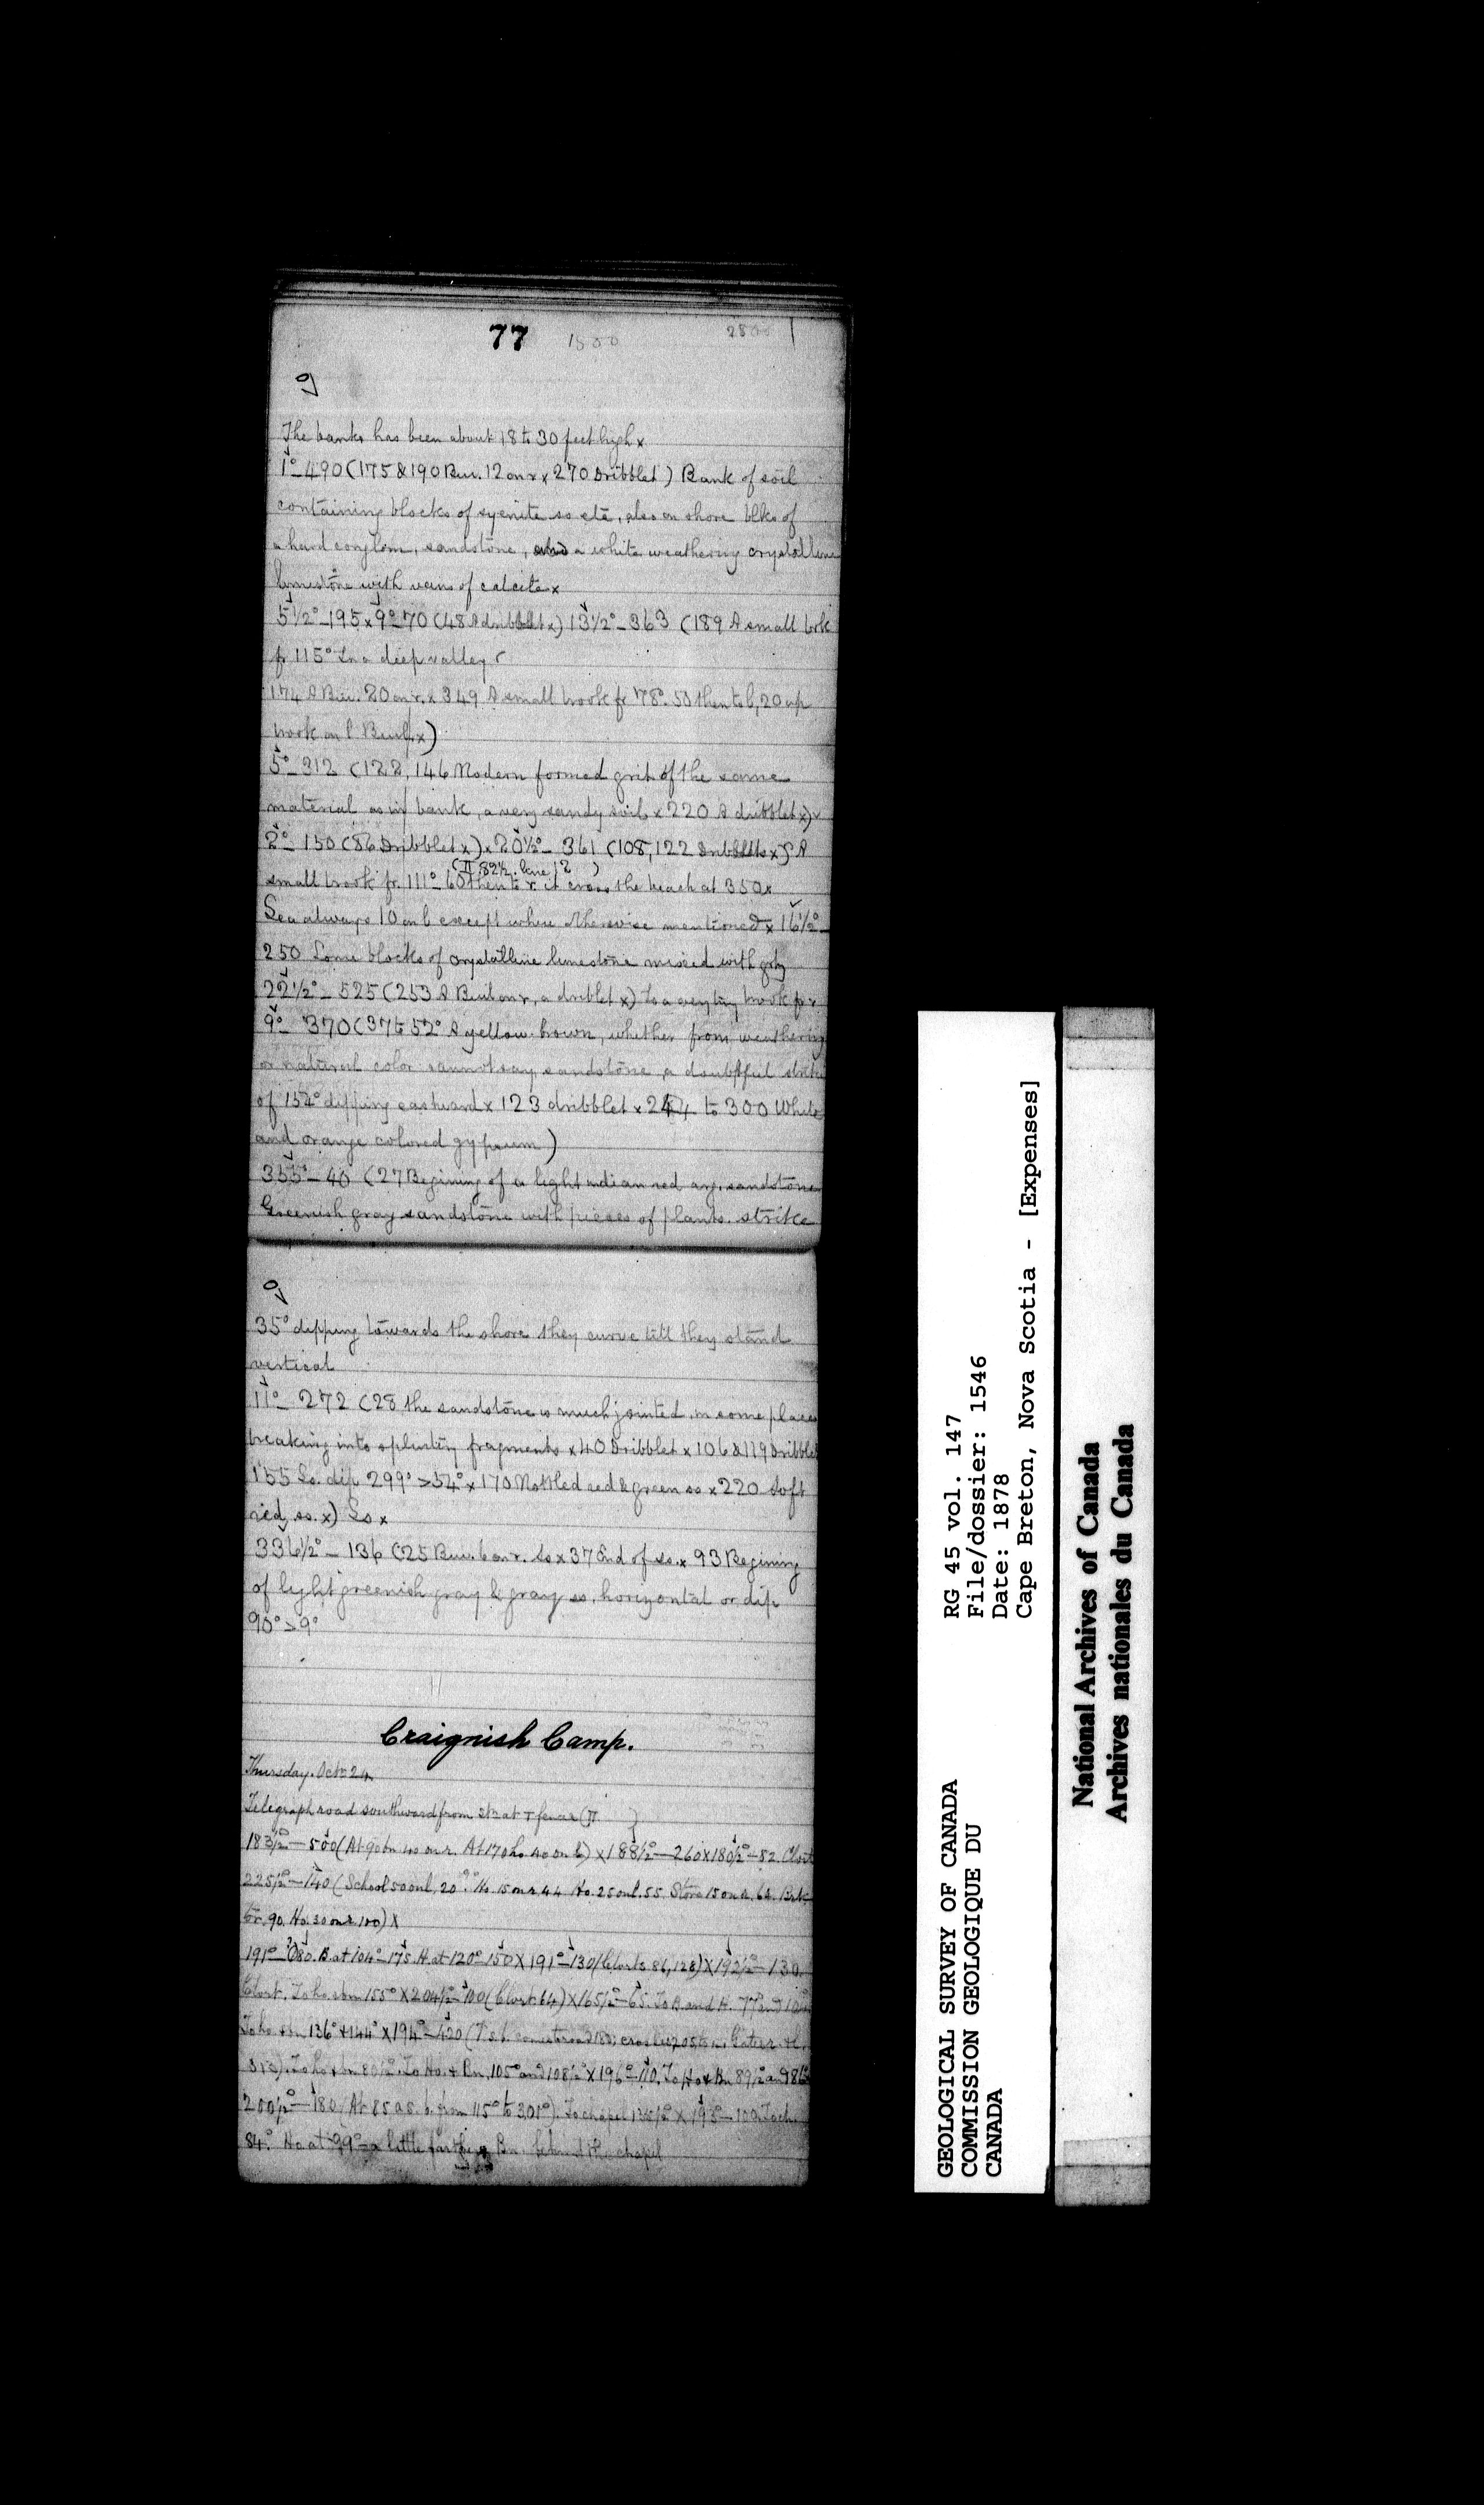 77 1800 2800
g
The banks has been about 18 to 30 feet high x
1° – 490 (175 & 190 Bui. 12 on r x 270 Dribblet) Bank of soil
containing blocks of syenite ss etc, also on shore blks of
a hard conglom, sandstone, and a white weathering crystalline
limestone with veins of calcite x
5 1/2° – 195 x 9° – 70 (48 A dribblet x) 13 1/2° – 363 (189 A small brk
fr 115° in a deep valley
174 A Bui. 20 on r. x 349 A small brook fr 78°. 50 then to l, 20 up
brook on l Buil. x)
5° – 312 (122, 146 Modern formed grit of the same
material as in bank, a very sandy soil x 220 A dribblet x)
2° – 150 (86 Dribblet x) x 20 1/2° – 361 (108, 122 Dribblets x) A
(II 82 1/2. line 12 )
small brook fr. 111° – 60 then to r. it cross the beach at 350 x
Sea always 10 on l except where otherwise mentioned x 16 1/2° –
250 Some blocks of crystalline limestone mixed with
22 1/2° – 525 (253 A Buil on r, a driblet x) to a very tiny brook fr r
9° – 370 (37 to 52° A yellow brown, whether from weathering
or natural color cannot say sandstone, a doubtful strike
of 152° dipping eastward x 123 dribblet x to 300 White
and orange colored gypsum)
355° – 40 (27 Begining of a light indian red arg. sandstone
Greenish gray sandstone with pieces of plants. strike
g
35° dipping towards the shore they curve till they stand
vertical
11° – 272 (28 the sandstone is much jointed, in some places
breaking into splintery fragments x 40 Dribblet x 106 & 119 Dribblet
155 Ss. dip 299° > 54° x 170 Mottled red & green ss x 220 Soft
red ss. x) Ss x
336 1/2° – 136 (25 Bui. 6 on r. Ss x 37 End of ss. x 93 Begining
of light greenish gray & gray ss, horizontal or dip
90° > 9°
Craignish Camp.
Thursday. Oct 24
Telegraph road southward from at T fence (II )
183 1/2° – 500 (At 90 bn 40 on r. At 170 ho 40 on l) x 188 1/2° – 260 x 180 1/2° – 52. Clvrt
225 1/2° – 140 (School 50 on l, 20. Ho. 15 on r 44 Ho. 25 on l. 55. Store 15 on r. 64. Brk
to r. 90. Ho. 30 on r 100) X
191° – 80. B at 104° – 175. H at 120° 150 X 191° – 130 (Clvrts 86, 128) X 192 1/2° – 130.
Clvrt. To ho. & bn 155° X 204 1/2° – 100 (Clvrt 64) X 165 1/2° – 65. To B and H. 77° and
To ho & bn 136° & 144° X 194° – 420
To ho & bn 80 1/2°. To Ho. & Bn. 105° and 108 1/2° X 196° – 110. To Ho & Bn 89 1/2° and 86°
200 1/2° – 180 (At 85 a s. b. from 115° to 301°). To chapel X 195° – 100. To ch.
84°. Ho at 99° – a little farther Bn. behind the chapel
GEOLOGICAL SURVEY OF CANADA
COMMISSION GEOLOGIQUE DU
CANADA
RG 45 vol. 147
File/dossier: 1546
Date: 1878
Cape Breton, Nova Scotia - [Expenses]
National Archives of Canada
Archives nationales du Canada